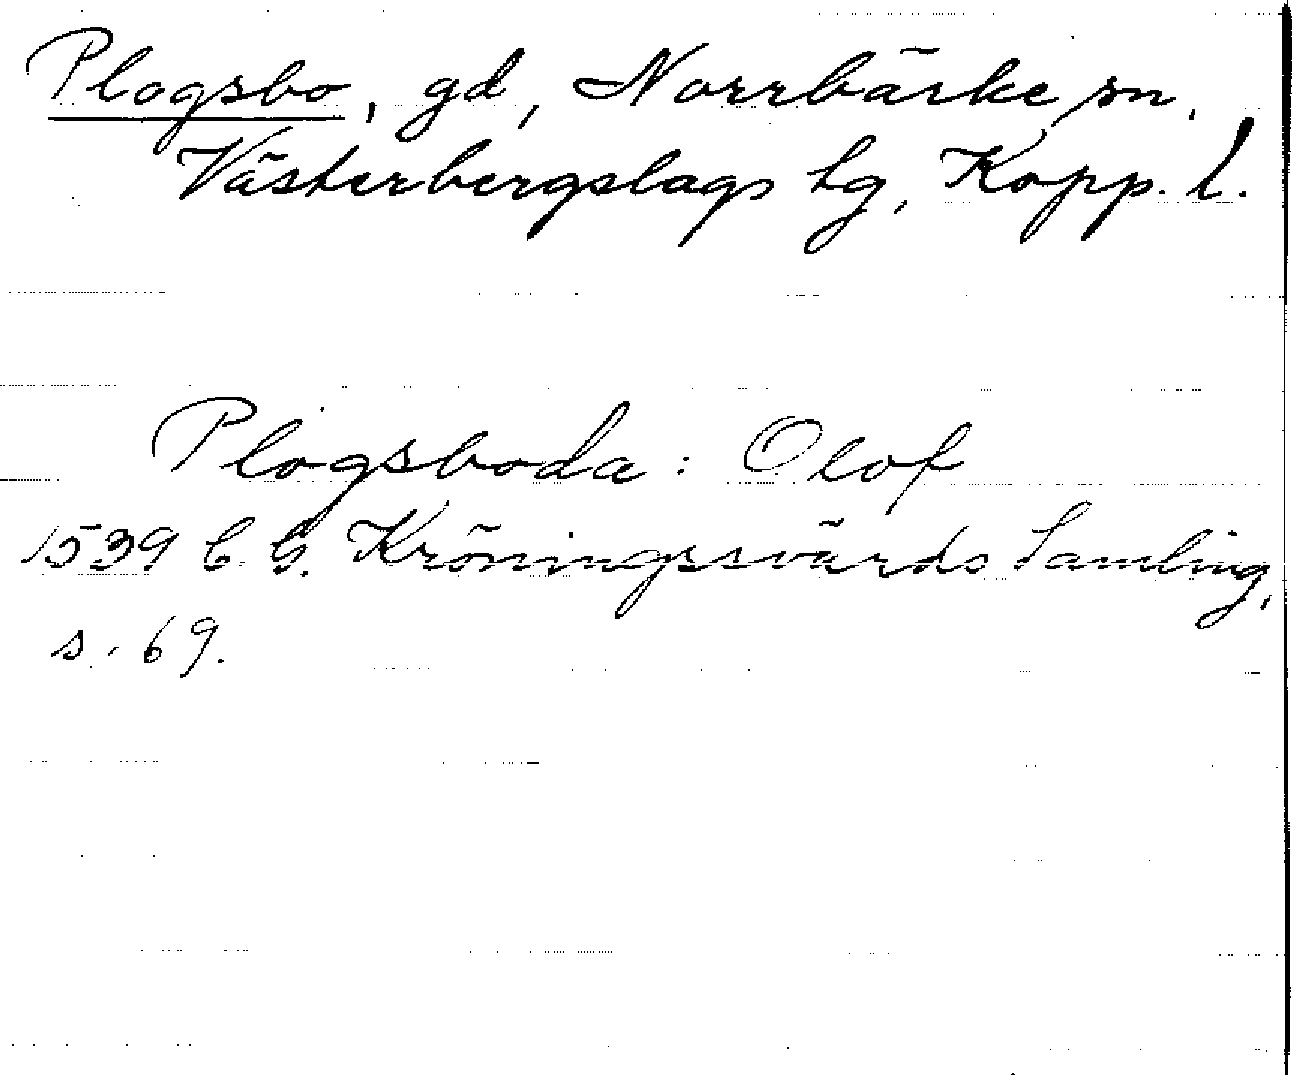 Plogsbo, gd, Norrbärke sn,
Västerbergslags tg, Kopp. l.
Plogsboda: Olof
1539 C. G. Kröningssvärds Samling,
s. 69.